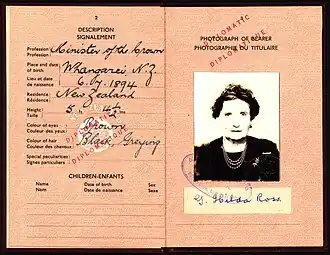 2
DESCRIPTION
SIGNALEMENT
Profession
Profession
Minister of the Crown
Place and date
of birth
Whangarei N.Z.
Lieu et date
de naissance
6.7.1894
Residence
Résidence
New Zealand
Height
Taille
5 ft. 4½ in.
Colour of eyes
Couleur des yeux
Brown
Colour of hair
Couleur des cheveux
Black, Greying
Special peculiarities
Signes particuliers
CHILDREN-ENFANTS
Name Date of birth Sex
Nom Date de naissance Sexe
DIPLOMATIC
DIPLOMATIQUE
PHOTOGRAPH OF BEARER
PHOTOGRAPHIE DU TITULAIRE
DIPLOMATIC
DIPLOMATIQUE
Hilda Ross.